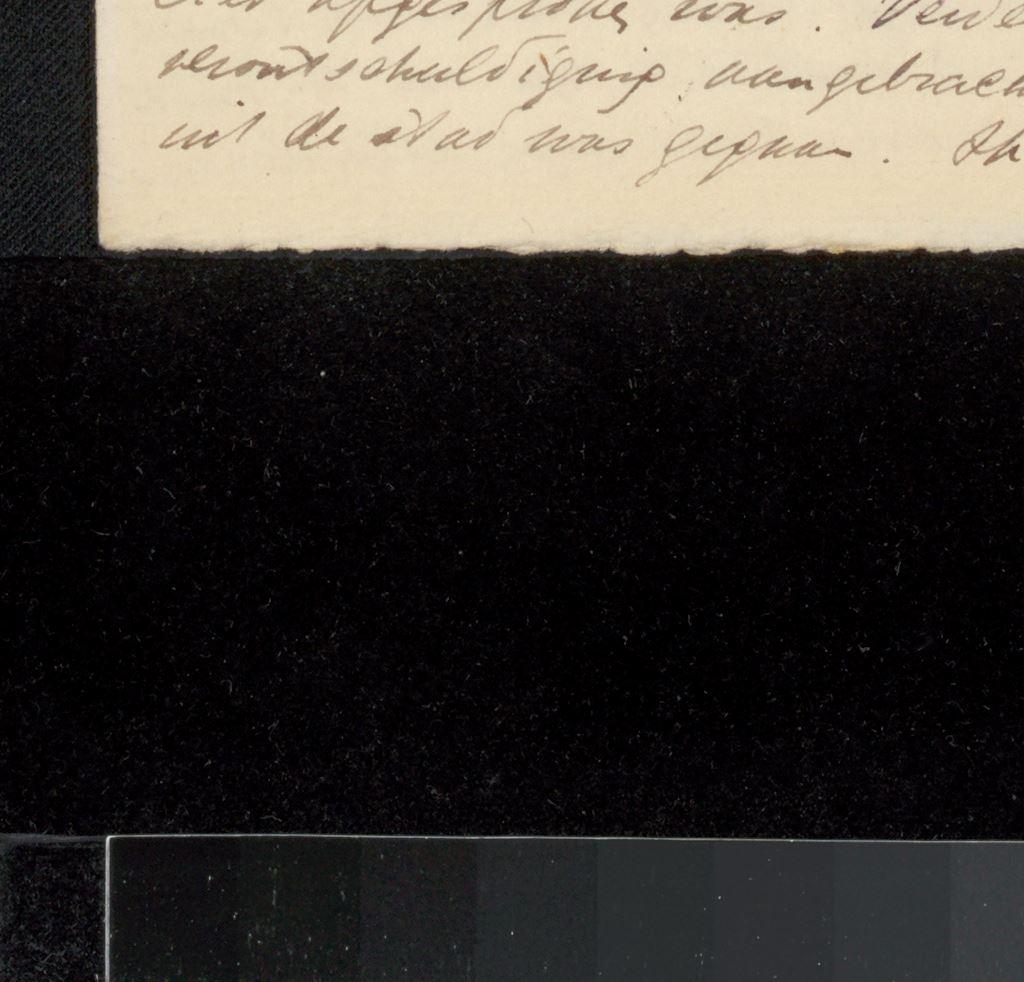 afgesproken was.
verontschuldiging aangebrach
uit de stad was gegaan.